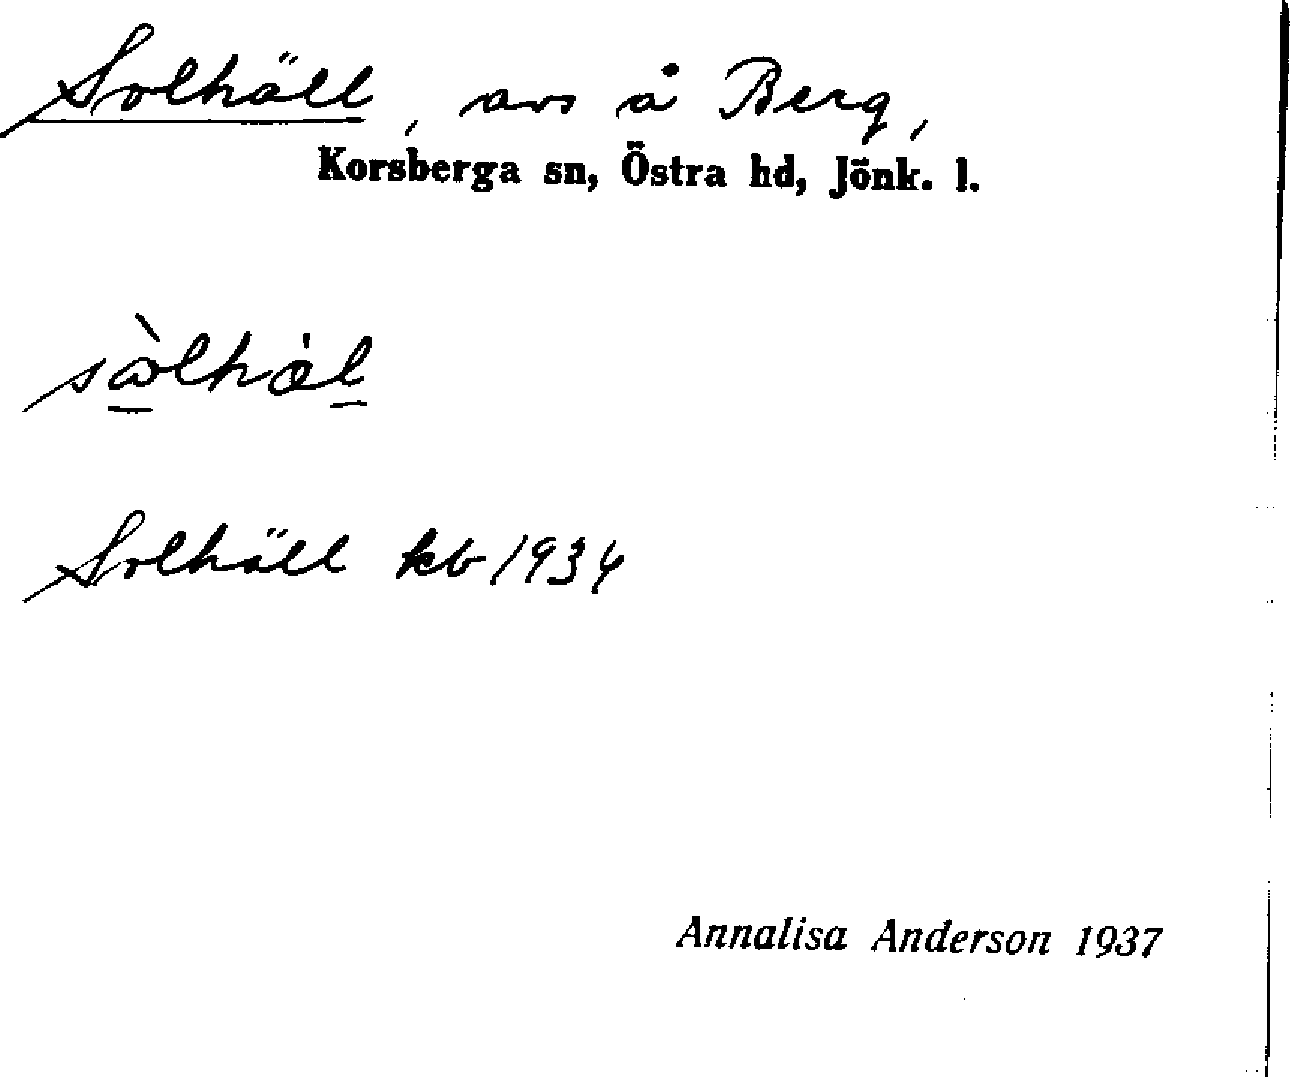 Solhäll, avs å Berg,
Korsberga sn, Östra hd, Jönk. l.
Solhäll kb 1934
Annalisa Anderson 1937